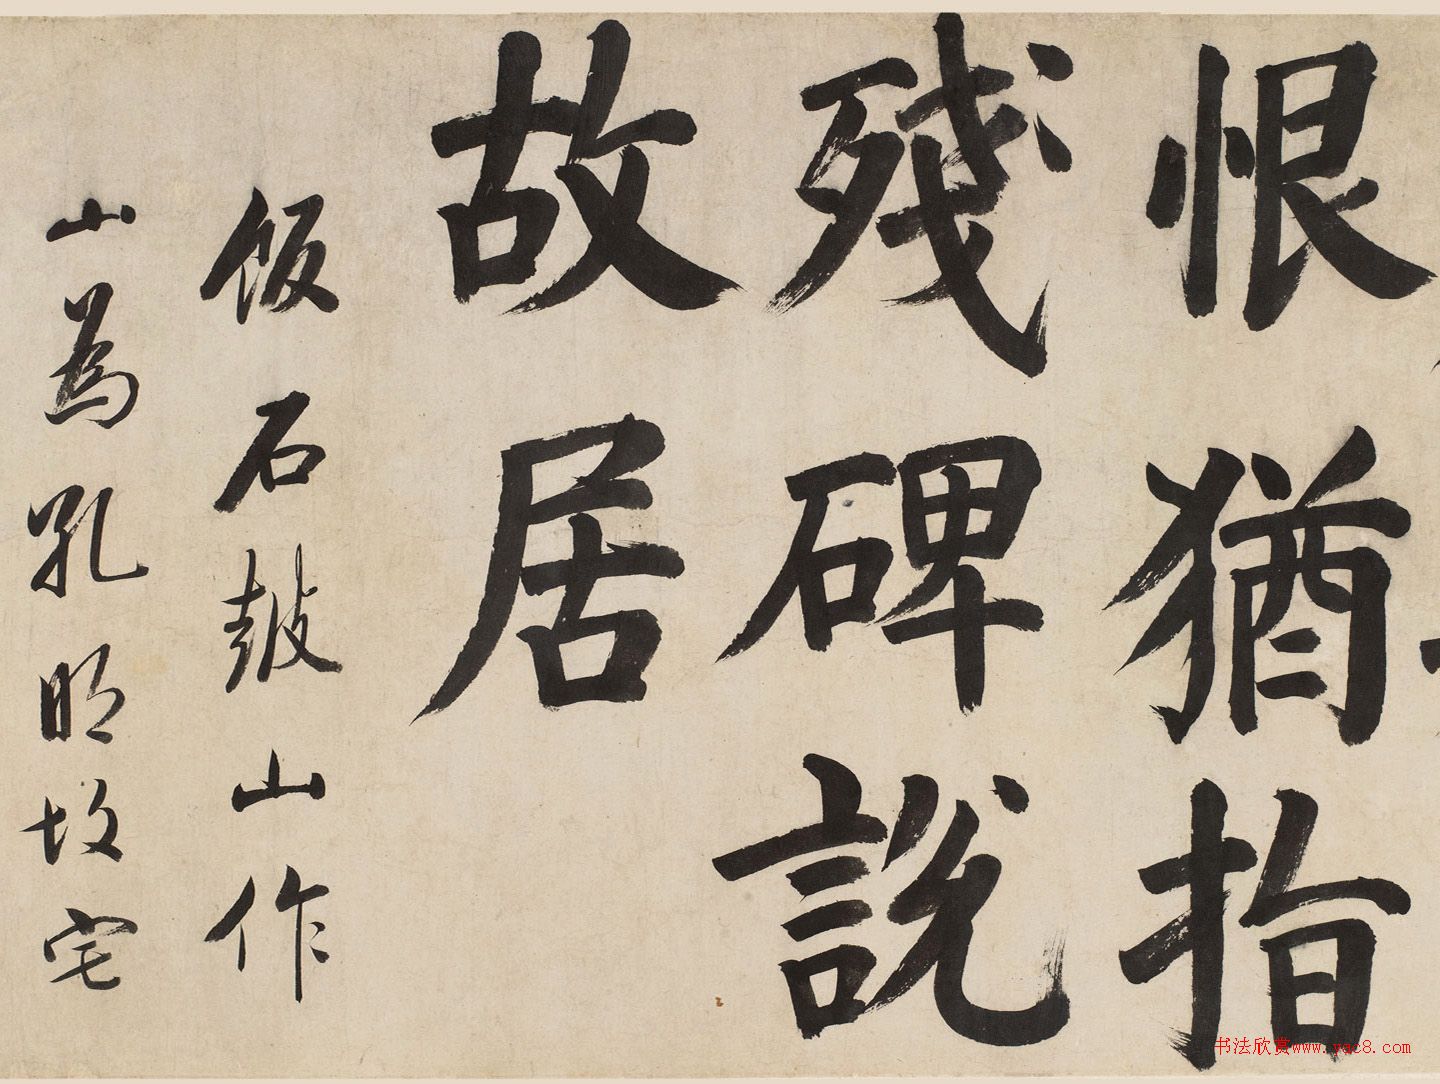 恨猶指
殘碑說
故居
飯石皷山作
山為孔明故宅
书法欣赏www.yac8.com